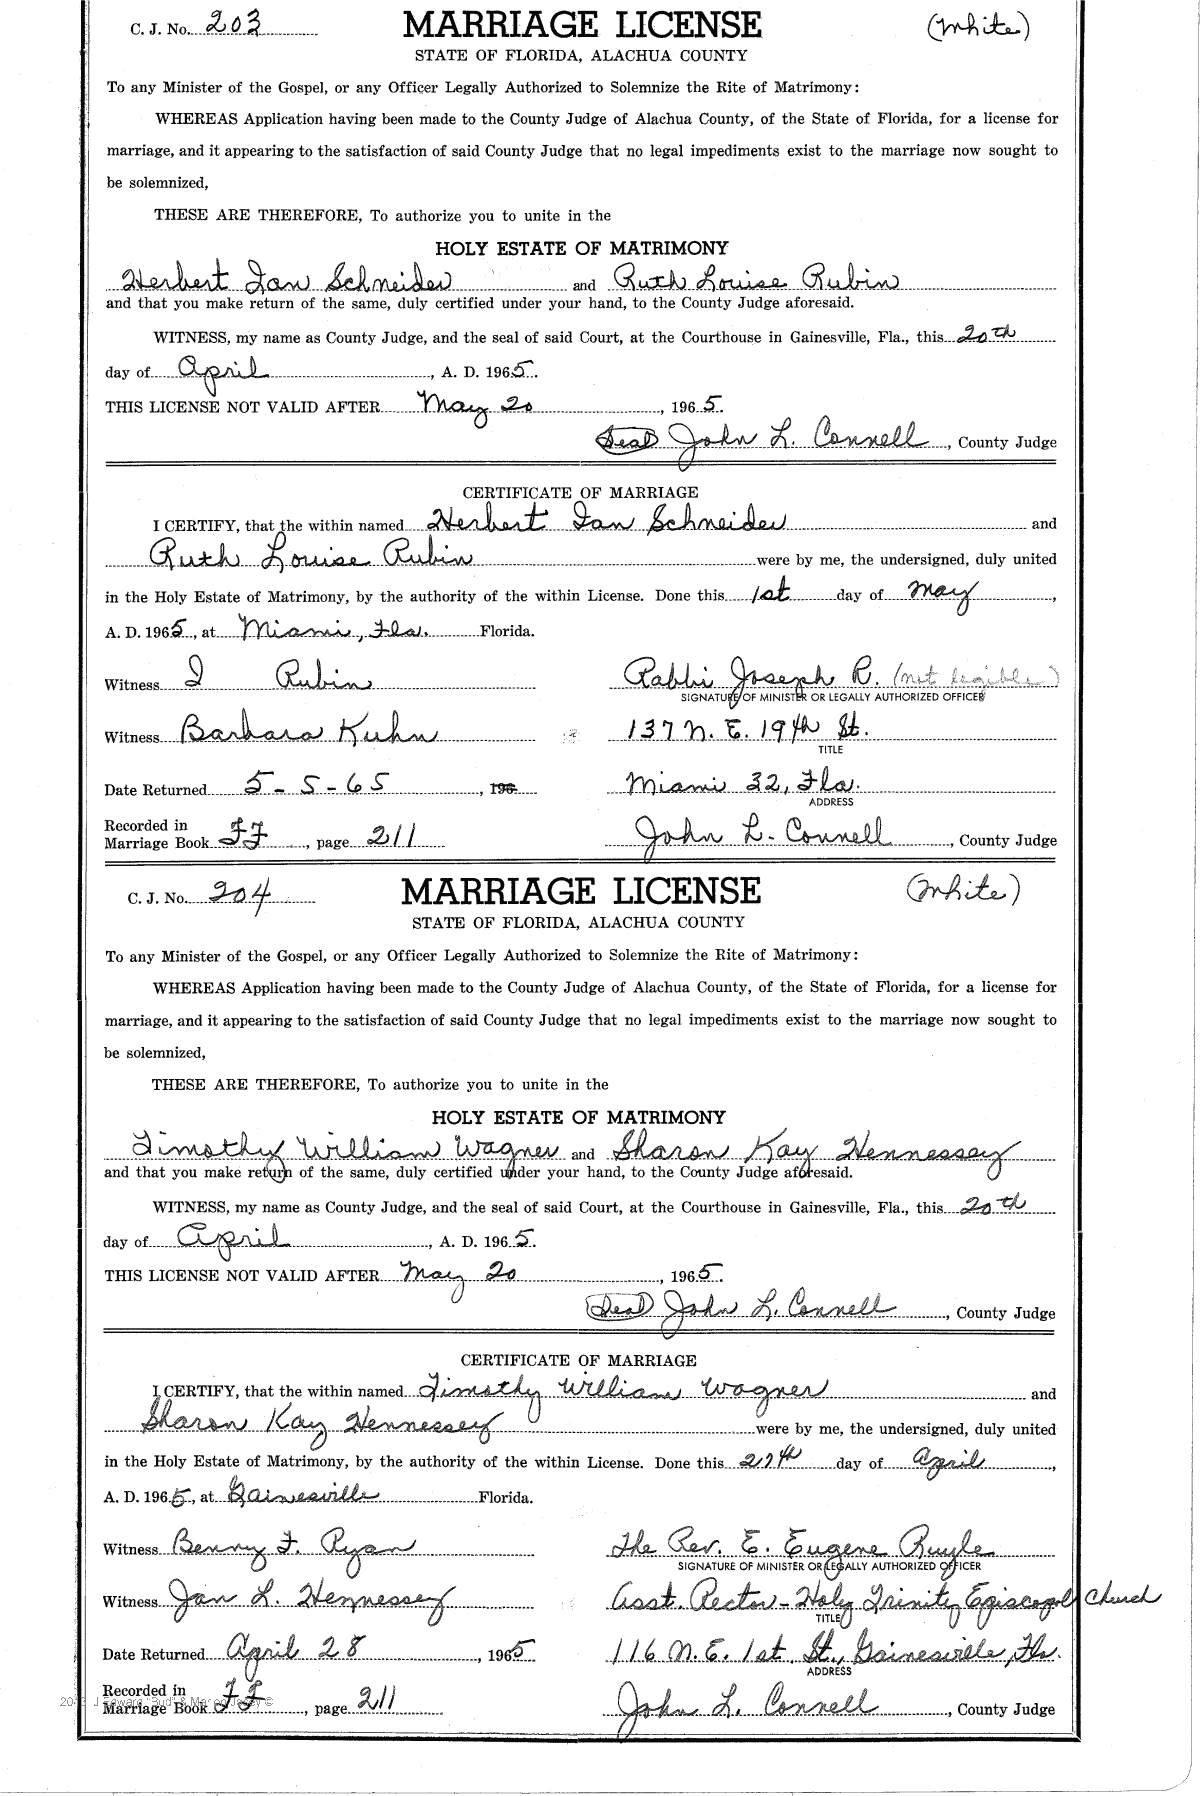 C. J. No. 203 MARRIAGE LICENSE (White)
STATE OF FLORIDA, ALACHUA COUNTY
To any Minister of the Gospel, or any Officer Legally Authorized to Solemnize the Rite of Matrimony:
WHEREAS Application having been made to the County Judge of Alachua County, of the State of Florida, for a license for
marriage, and it appearing to the satisfaction of said County Judge that no legal impediments exist to the marriage now sought to
be solemnized,
THESE ARE THEREFORE, To authorize you to unite in the
HOLY ESTATE OF MATRIMONY
Herbert Ian Schneider and Ruth Louise Rubin
and that you make return of the same, duly certified under your hand, to the County Judge aforesaid.
WITNESS, my name as County Judge, and the seal of said Court, at the Courthouse in Gainesville, Fla., this 20th
day of April, A. D. 1965.
THIS LICENSE NOT VALID AFTER May 20, 1965.
(Seal) John L. Connell, County Judge
CERTIFICATE OF MARRIAGE
I CERTIFY, that the within named Herbert Ian Schneider and
Ruth Louise Rubin were by me, the undersigned, duly united
in the Holy Estate of Matrimony, by the authority of the within License. Done this 1st day of May,
A. D. 1965, at Miami, Fla. Florida.
Witness I Rubin Rabbi Joseph R. (not legible)
SIGNATURE OF MINISTER OR LEGALLY AUTHORIZED OFFICER
Witness Barbara Kuhn 137 N. E. 19th St.
TITLE
Date Returned 5-5-65, 196 Miami 32, Fla.
ADDRESS
Recorded in
Marriage Book FF, page 211 John L. Connell, County Judge
C. J. No. 204 MARRIAGE LICENSE (White)
STATE OF FLORIDA, ALACHUA COUNTY
To any Minister of the Gospel, or any Officer Legally Authorized to Solemnize the Rite of Matrimony:
WHEREAS Application having been made to the County Judge of Alachua County, of the State of Florida, for a license for
marriage, and it appearing to the satisfaction of said County Judge that no legal impediments exist to the marriage now sought to
be solemnized,
THESE ARE THEREFORE, To authorize you to unite in the
HOLY ESTATE OF MATRIMONY
Timothy William Wagner and Sharon Kay Hennessey
and that you make return of the same, duly certified under your hand, to the County Judge aforesaid.
WITNESS, my name as County Judge, and the seal of said Court, at the Courthouse in Gainesville, Fla., this 20th
day of April, A. D. 1965.
THIS LICENSE NOT VALID AFTER May 20, 1965.
(Seal) John L. Connell, County Judge
CERTIFICATE OF MARRIAGE
I CERTIFY, that the within named Timothy William Wagner and
Sharon Kay Hennessey were by me, the undersigned, duly united
in the Holy Estate of Matrimony, by the authority of the within License. Done this 27th day of April,
A. D. 1965, at Gainesville Florida.
Witness Benny F. Ryan The Rev. E. Eugene Ruyle
SIGNATURE OF MINISTER OR LEGALLY AUTHORIZED OFFICER
Witness Jan L. Hennessey Asst. Rector - Holy Trinity Episcopal Church
TITLE
Date Returned April 28, 1965 116 N. E. 1st St., Gainesville, Fla.
ADDRESS
Recorded in
Marriage Book FF, page 211 John L. Connell, County Judge